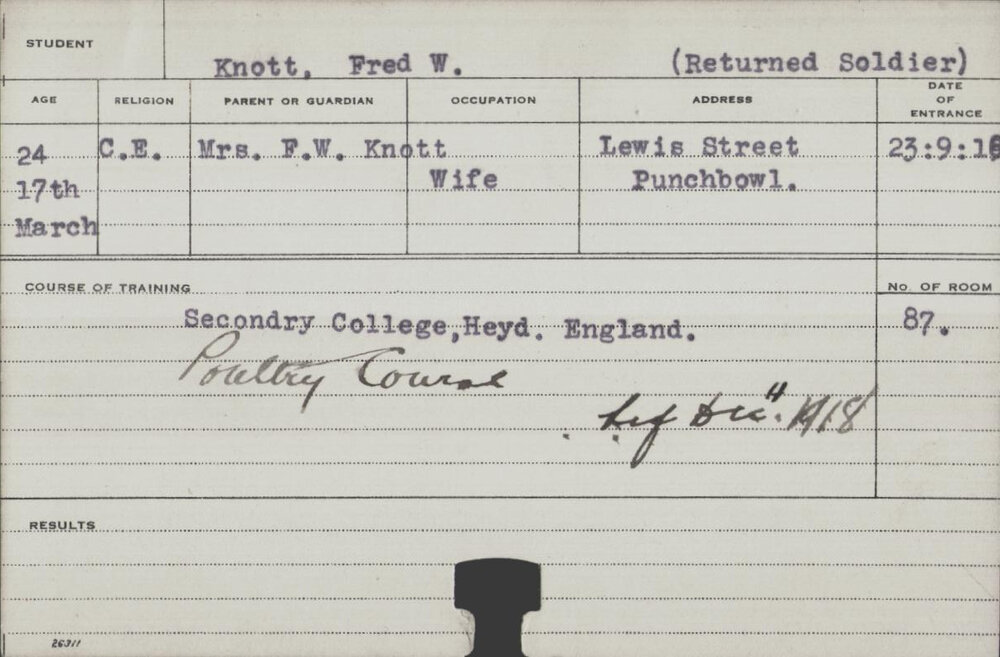 STUDENT
Knott, Fred W. (Returned Soldier)
AGE RELIGION PARENT OR GUARDIAN OCCUPATION ADDRESS DATE OF ENTRANCE
24 C.E. Mrs. F.W. Knott Lewis Street 23:9:18
17th Wife Punchbowl.
March
COURSE OF TRAINING No. OF ROOM
Secondry College,Heyd. England. 87.
Poultry Course
Dec. 1918
RESULTS
26311